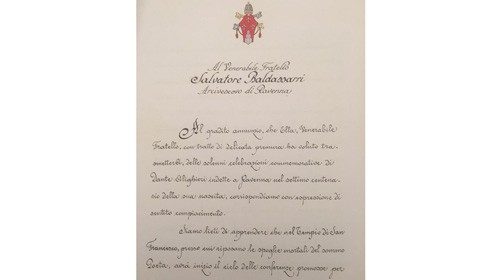 Al Venerabile Fratello
Salvatore Baldassarri
Arcivescovo di Ravenna
Al gradito annunzio, che Ella, Venerabile
Fratello, con tratto di delicata premura ha voluto tra-
smetterci, delle solenni celebrazioni commemorative di
Dante Alighieri indette a Ravenna nel settimo centena-
rio della sua nascita, corrispondiamo con espressione di
sentito compiacimento.
Siamo lieti di apprendere che nel Tempio di San
Francesco, presso cui riposano le spoglie mortali del sommo
Poeta, avrà inizio il ciclo delle conferenze promosse per